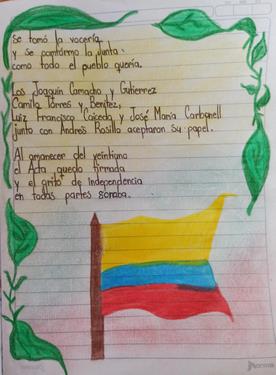 se tomó la vocería,
y se conformo la junta
como todo el pueblo quería.
Los Joaquín Camacho y Gutierrez
Camilo Torres y Benítez,
Luiz Francisco Caicedo y José María Carbonell
junto con Andres Rosillo aceptaron su papel.
Al amanecer del veintiuno
el Acta quedo firmada
y el grito de Independencia
en todas partes sonaba.
Norma